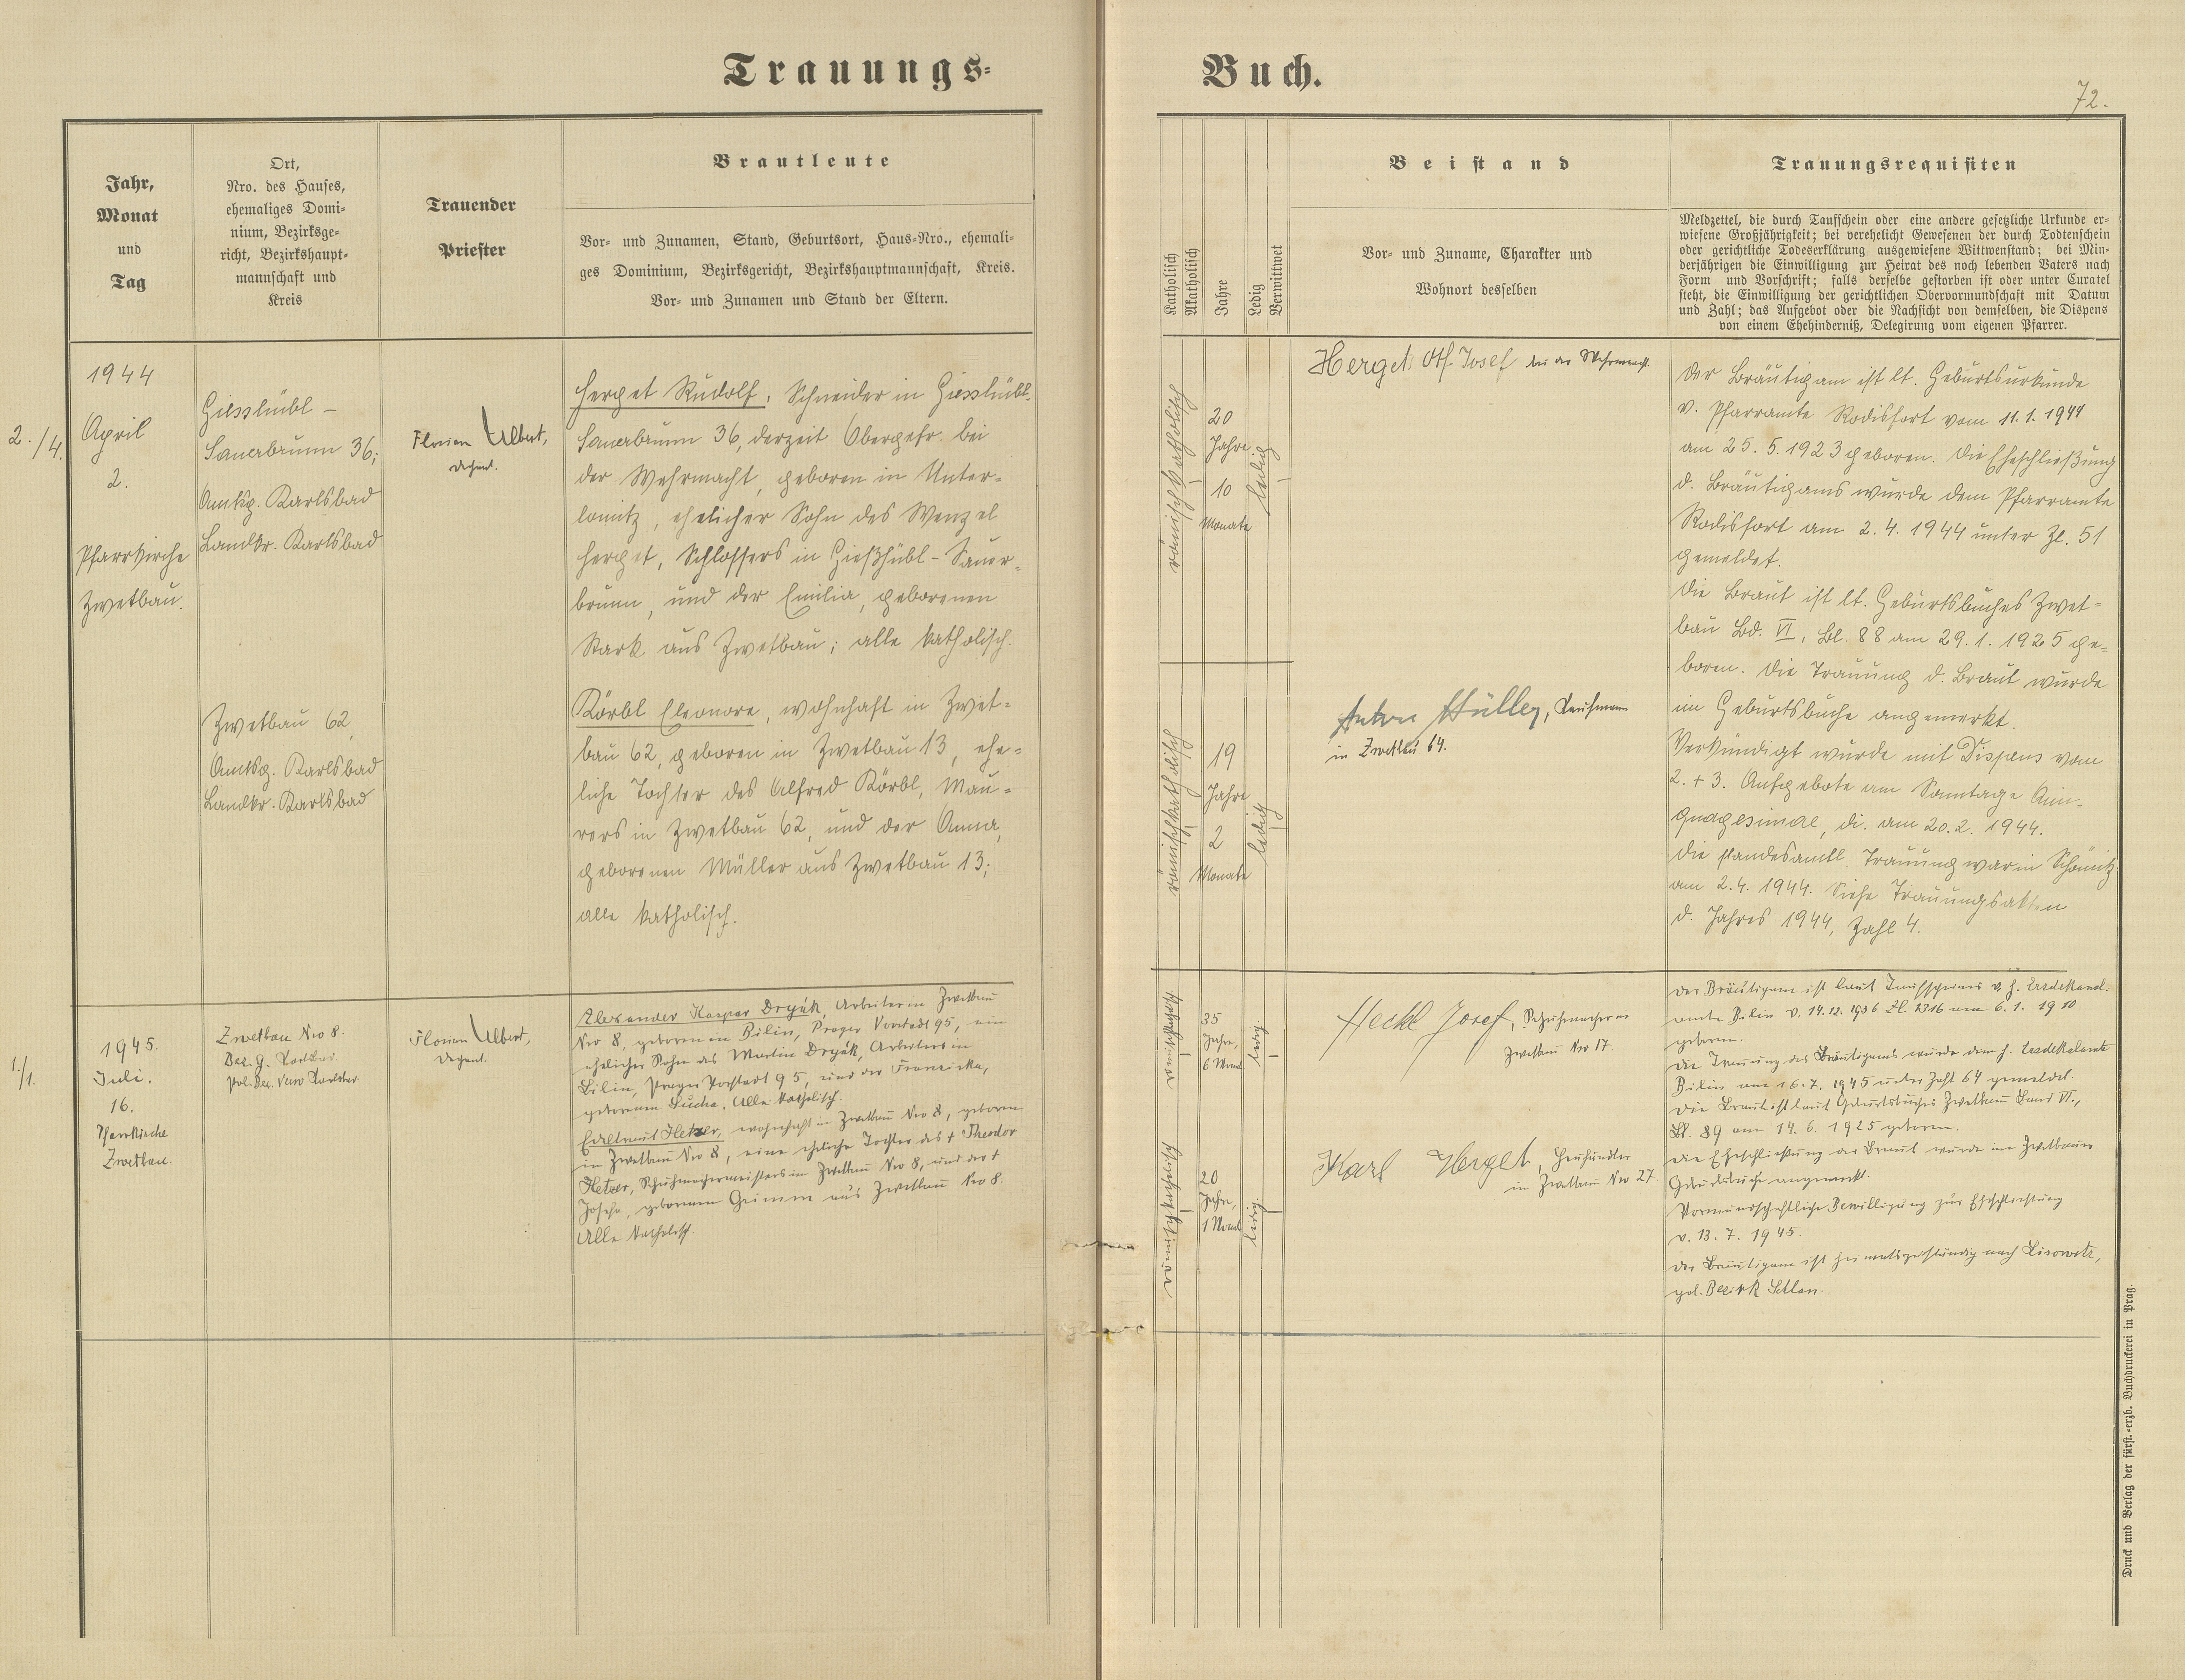 Trauungs-
Buch.
72.
Jahr,
Monat
und
Tag
Ort,
Nro. des Hauses,
ehemaliges Domi-
nium, Bezirksge-
richt, Bezirkshaupt-
mannschaft und
Kreis
Trauender
Priester
Brautleute
Vor- und Zunamen, Stand, Geburtsort, Haus-Nro., ehemali-
ges Dominium, Bezirksgericht, Bezirkshauptmannschaft, Kreis.
Vor- und Zunamen und Stand der Eltern.
Katholisch
Akatholisch
Jahre
Ledig
Verwittwet
Beistand
Vor- und Zuname, Charakter und
Wohnort desselben
Trauungsrequisiten
Meldzettel, die durch Taufschein oder eine andere gesetzliche Urkunde er-
wiesene Großjährigkeit; bei verehelicht Gewesenen der durch Todtenschein
oder gerichtliche Todeserklärung ausgewiesene Wittwenstand; bei Min-
derjährigen die Einwilligung zur Heirat des noch lebenden Vaters nach
Form und Vorschrift; falls derselbe gestorben ist oder unter Curatel
steht, die Einwilligung der gerichtlichen Obervormundschaft mit Datum
und Zahl; das Aufgebot oder die Nachsicht von demselben, die Dispens
von einem Ehehinderniß, Delegirung vom eigenen Pfarrer.
2./4.
1944
April
2.
Pfarrkirche
Zwetbau.
Giesshübl -
Sauerbrunn 36;
Amtsg. Karlsbad
Landkr. Karlsbad
Zwetbau 62,
Amtsg. Karlsbad
Landkr. Karlsbad
Florian Albert,
Dechant.
Herget Rudolf, Schneider in Giesshübl-
Sauerbrunn 36, derzeit Obergefr. bei
der Wehrmacht, geboren in Unter-
lomitz, ehelicher Sohn des Wenzel
Herget, Schlossers in Gießhübl-Sauer-
brunn, und der Emilia, geborenen
Stark aus Zwetbau; alle katholisch.
Körbl Eleonore, wohnhaft in Zwet-
bau 62, geboren in Zwetbau 13, ehe-
liche Tochter des Alfred Körbl, Mau-
rers in Zwetbau 62, und der Anna,
geborenen Müller aus Zwetbau 13;
alle katholisch.
römisch katholisch
20
Jahre
10
Monate
ledig
römischkatholisch
19
Jahre
2
Monate
ledig
Herget Josef bei der Wehrmacht.
Anton Hüller, Kaufmann
in Zwetbau 64.
Der Bräutigam ist lt. Geburtsurkunde
v. Pfarramte Rodisfort vom 11.1.1944
am 25.5.1923 geboren. Die Eheschließung
d. Bräutigams wurde dem Pfarramte
Rodisfort am 2.4.1944 unter Zl. 51
gemeldet.
Die Braut ist lt. Geburtsbuches Zwet-
bau Bd. VI, Bl. 88 am 29.1.1925 ge-
boren. Die Trauung d. Braut wurde
im Geburtsbuche angemerkt.
Verkündigt wurde mit Dispens vom
2. + 3. Aufgebote am Sonntage Quin-
quagesimae, di. am 20.2.1944.
Die standesamtl. Trauung war in Schömitz
am 2.4.1944. Siehe Trauungsakten
d. Jahres 1944, Zahl 4.
1./1.
1945.
Juli.
16.
Pfarrkirche
Zwetbau.
Zwetbau Nro 8.
Bez. g.
Pol. Bez.
Florian Albert,
Dechant.
Alexander Kaspar Dryák, Arbeiter in Zwetbau
Nro 8, geboren in Bilin, Prager Vorstadt 95, ein
ehelicher Sohn des Martin Dryák, Arbeiters in
Bilin, Prager Vorstadt 95, und der Franziska,
geborenen Alle katholisch.
Edeltraut Hetzer, wohnhaft in Zwetbau Nro 8, geboren
in Zwetbau Nro 8, eine eheliche Tochter des † Theodor
Hetzer, Schuhmachermeisters in Zwetbau Nro 8, und der †
Josefa, geborenen Grimm aus Zwetbau Nro 8.
Alle katholisch.
römischkatholisch
35
Jahre,
6 Monat
ledig.
römischkatholisch
20
Jahre,
1 Monat
ledig.
Heckl Josef, Schuhmacher in
Zwetbau Nro 17.
Karl Herget,
in Zwetbau Nro 27.
Der Bräutigam ist laut Taufscheines v. h. Erzdekanal-
amte Bilin v. 14.12.1936 Zl. 2316 am 6.1.1910
geboren.
Die Trauung des Bräutigams wurde dem h. Erzdekalamte
Bilin am 16.7.1945 unter Zahl 64 gemeldet.
Die Braut ist laut Geburtsbuches Zwetbau Band VI.,
Bl. 89 am 14.6.1925 geboren.
Die Eheschließung der Braut wurde im Zwetbauer
Geburtsbuche angemerkt.
Vormundschaftliche Bewilligung zur Eheschließung
v. 13.7.1945.
Der Bräutigam ist heimatszuständig nach
pol. Bezirk
Druck und Verlag der fürst.-erzb. Buchdruckerei in Prag.